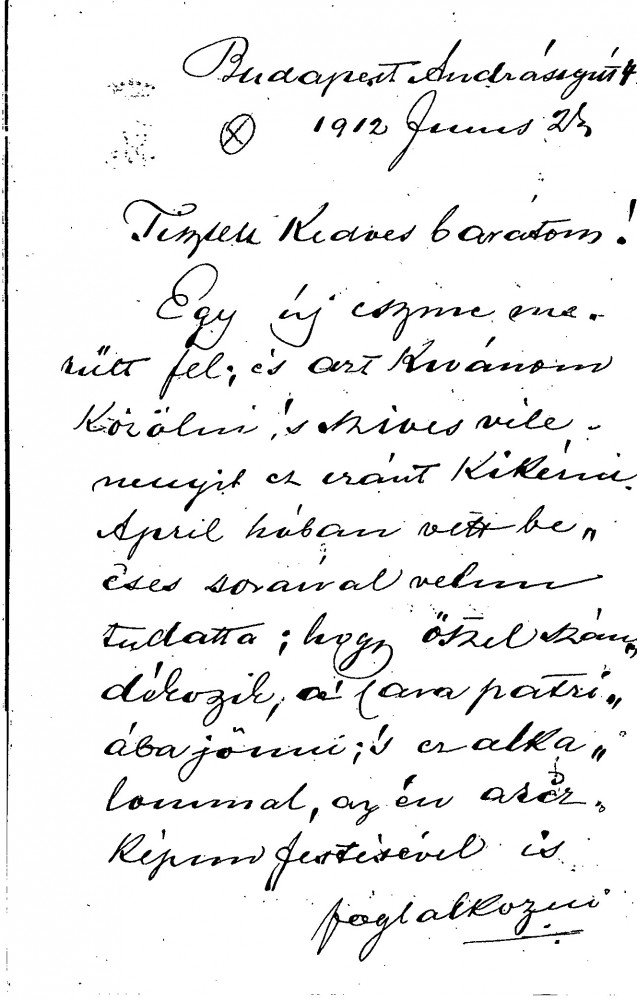 Budapest Andrássyút 4.
1912 Junius 2
Tisztelt Kedves barátom!
Egy új eszme me-
rült fel; és azt Kivánom
Közölni 's szives véle-
menyit ez eránt Kikérni.
April hóban vett be„
cses soraival velem
tudatta; hogy őszel szán„
dékozik, a Cara patri„
ába jönni; 's ez alka„
lommal, az én arcz-
Képem festésével is
foglalkozni